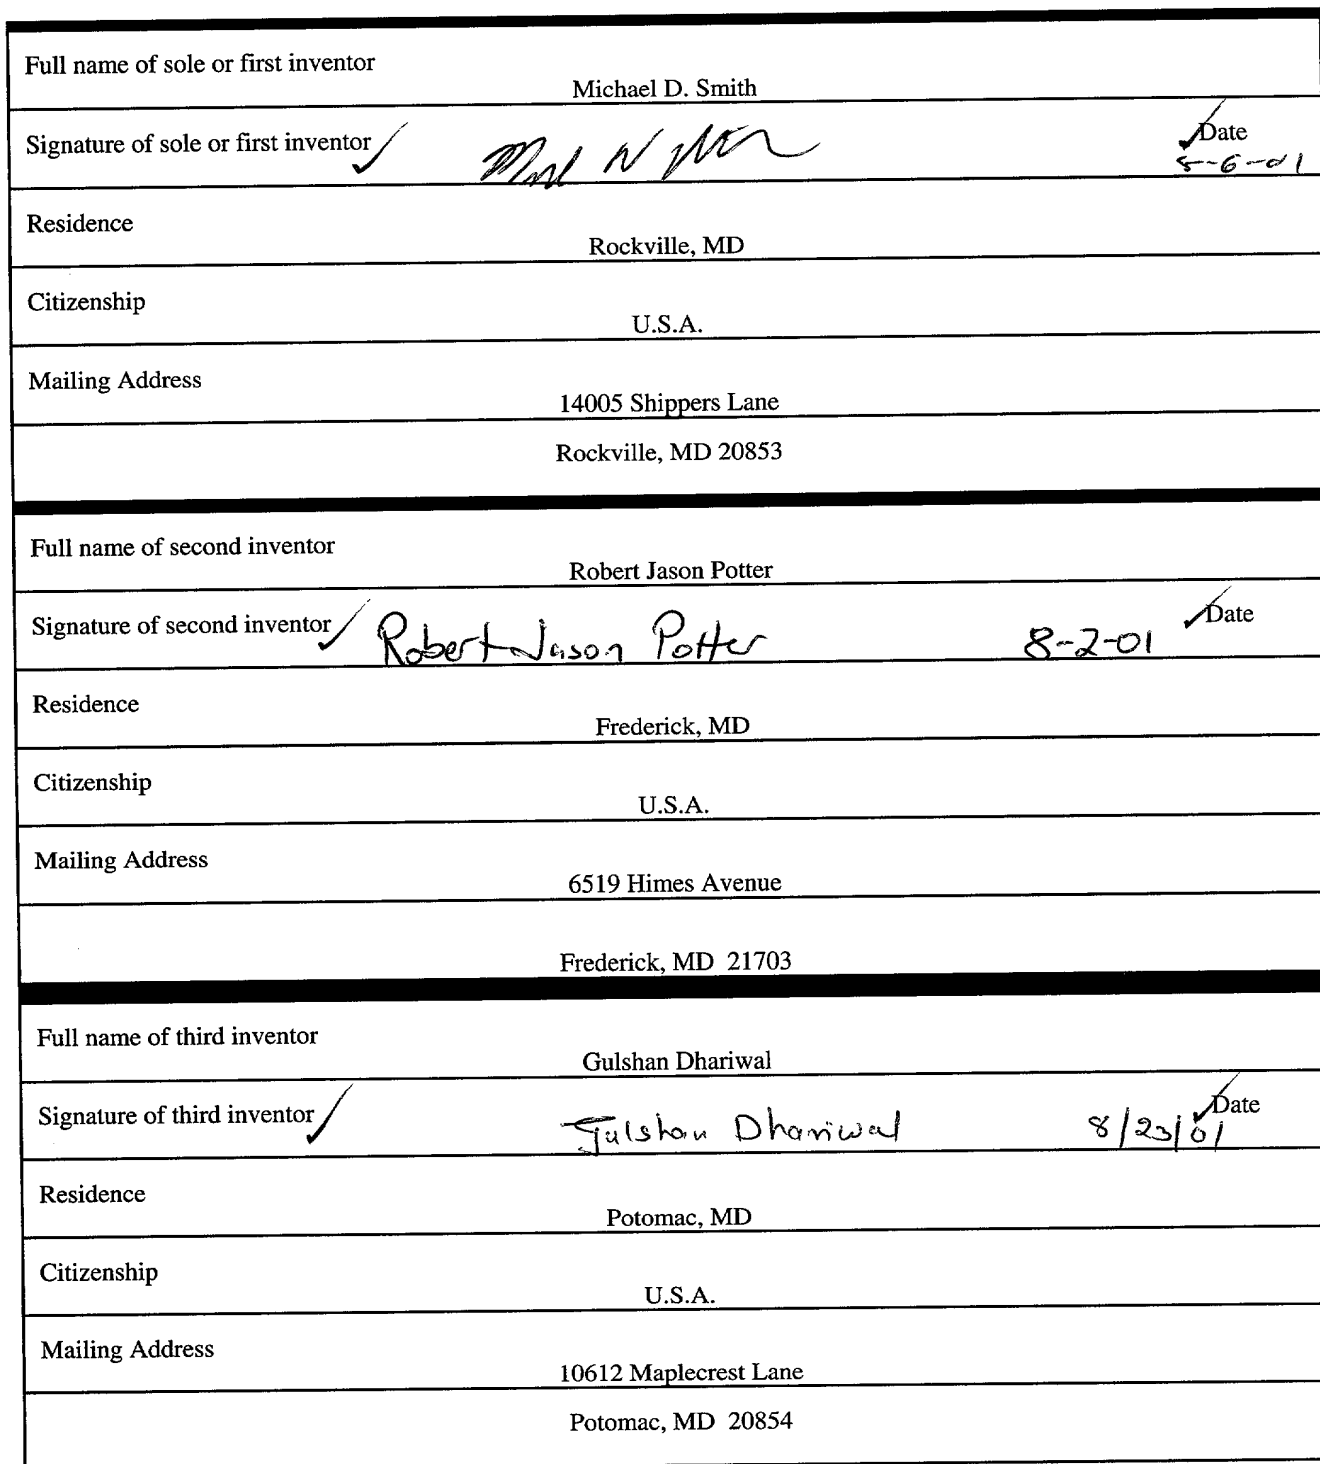 Full name of sole or first inventor
Michael D. Smith
Signature of sole or first inventor
Date
Residence
Rockville, MD
Citizenship
U.S.A.
Mailing Address
14005 Shippers Lane
Rockville, MD 20853
Full name of second inventor
Robert Jason Potter
Signature of second inventor Robert Jason Potter 8-2-01 Date
Residence
Frederick, MD
Citizenship
U.S.A.
Mailing Address
6519 Himes Avenue
Frederick, MD 21703
Full name of third inventor
Gulshan Dhariwal
Signature of third inventor Gulshan Dhariwal 8/23/01 Date
Residence
Potomac, MD
Citizenship
U.S.A.
Mailing Address
10612 Maplecrest Lane
Potomac, MD 20854